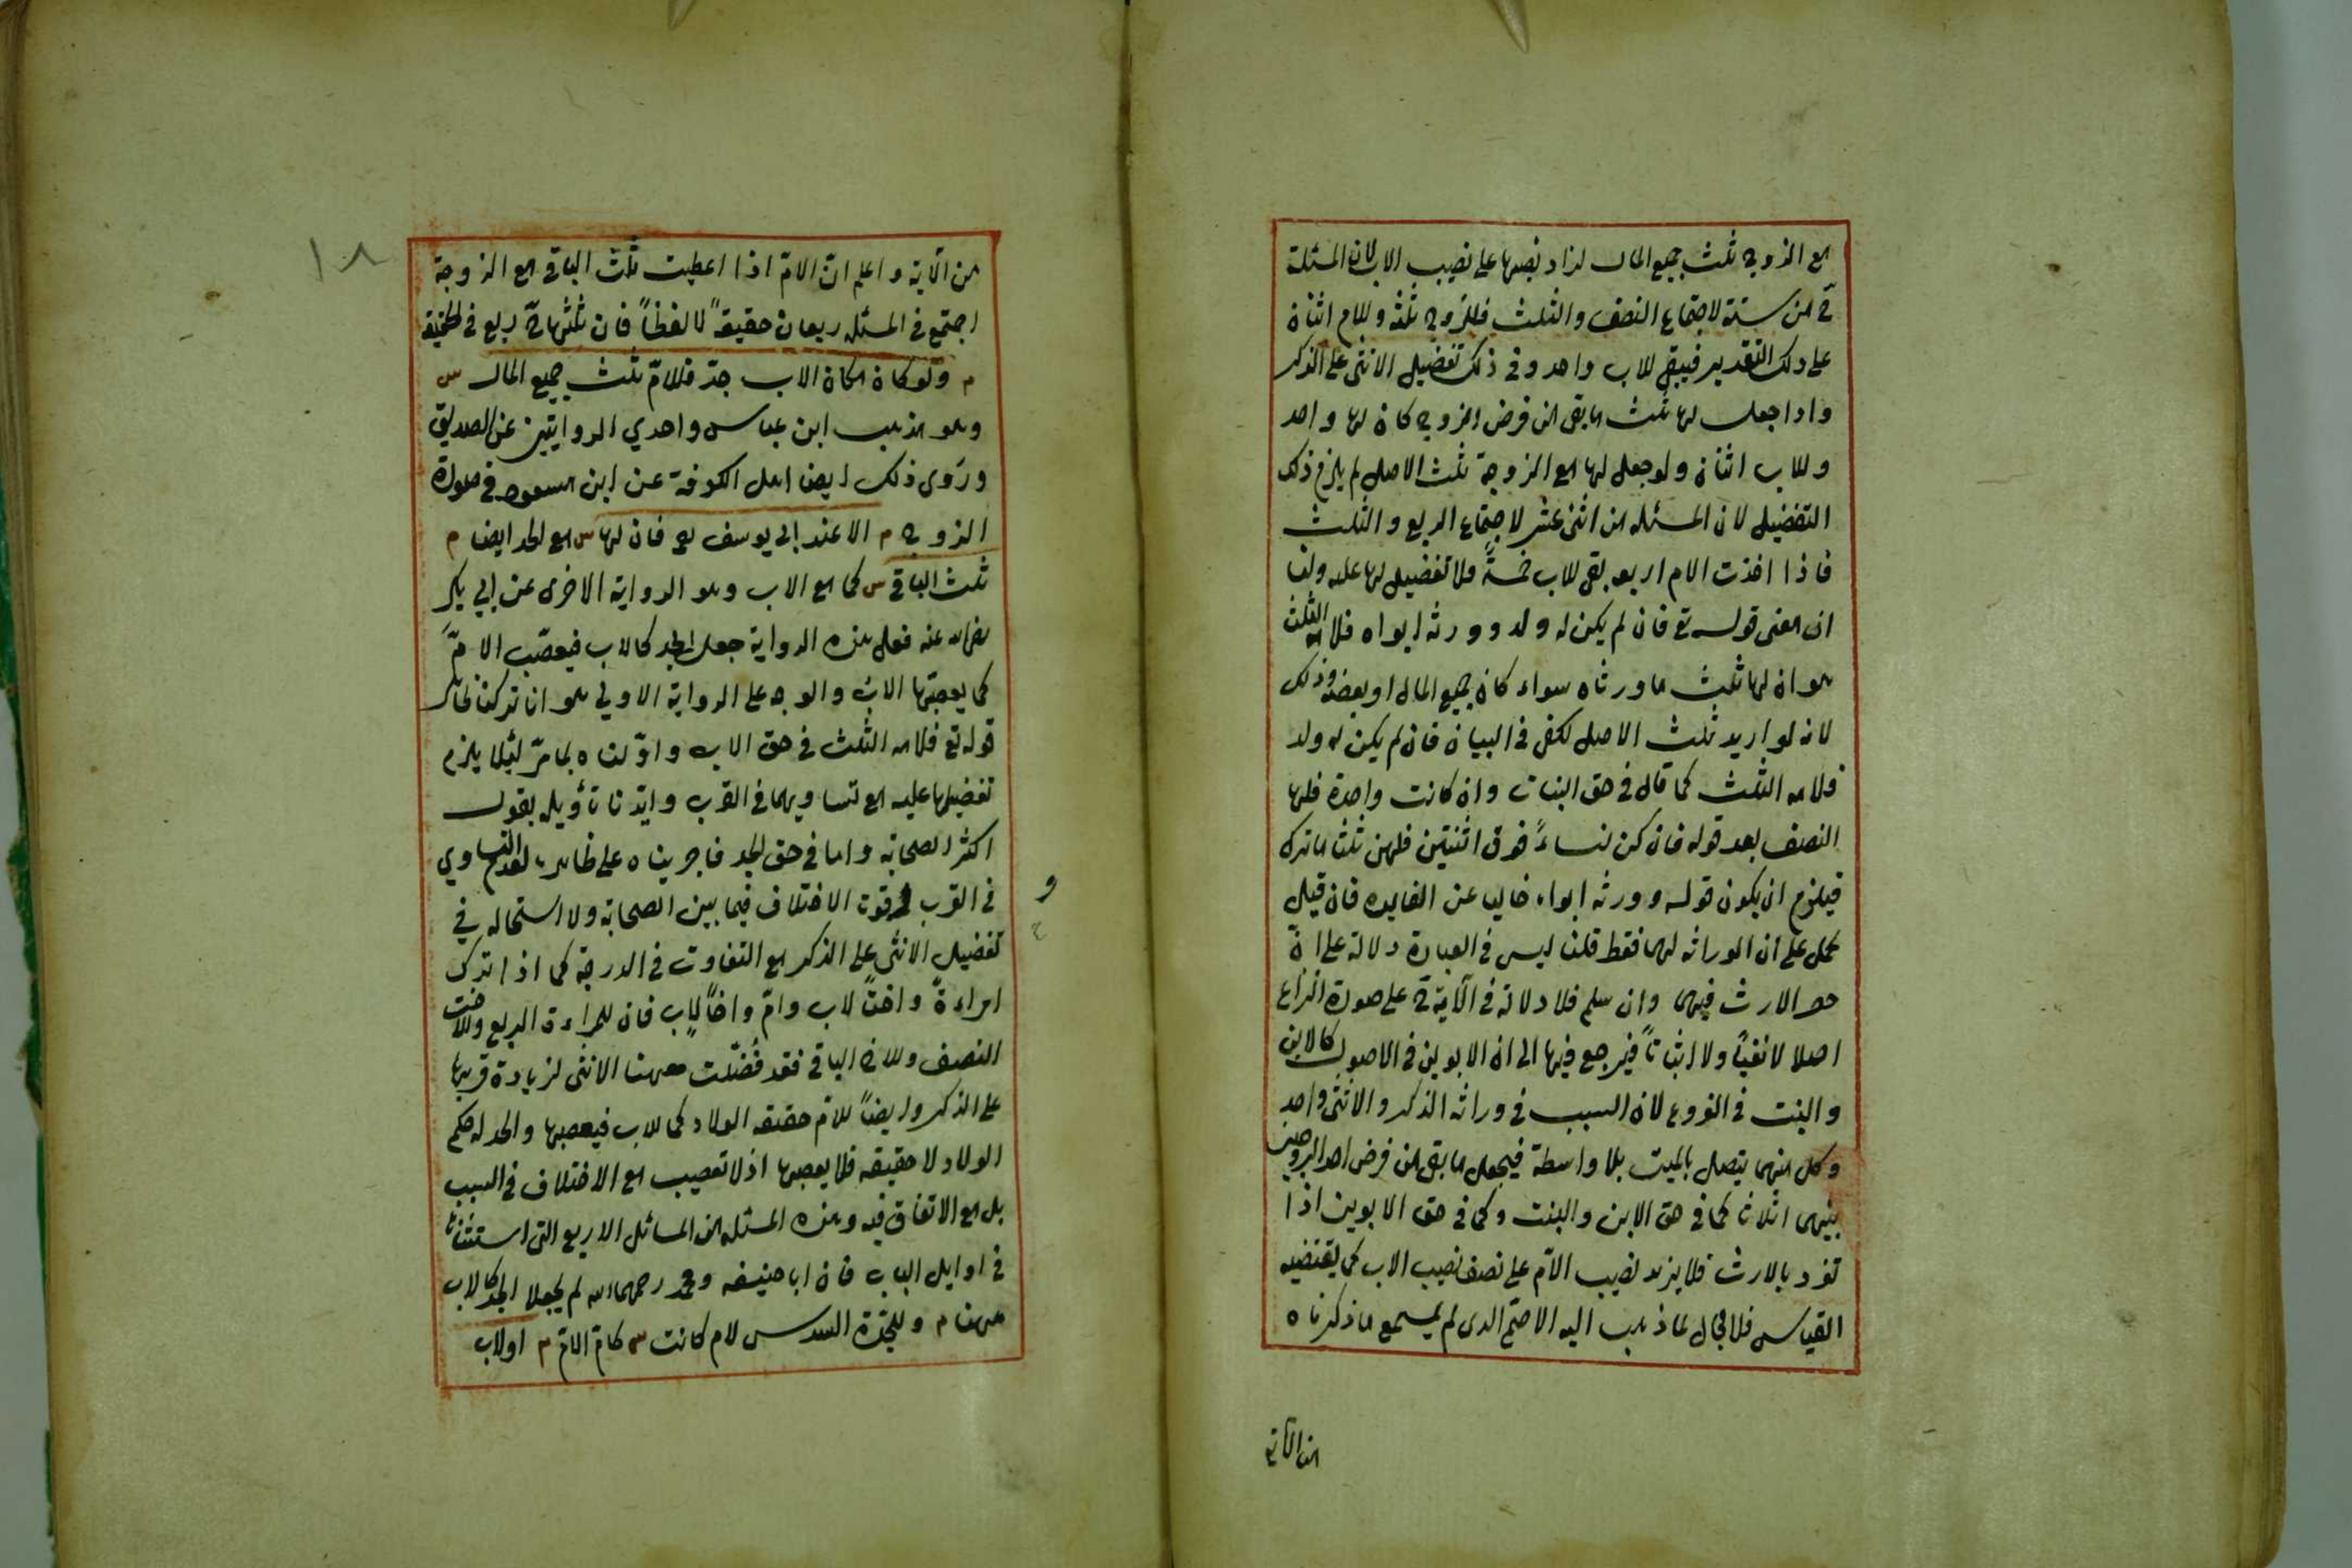 مع الزوج ثلث جميع المال لزاد نصيبها على نصيب الاب لان المسئلة
ح من ستة لاجتماع النصف والثلث فللزوج ثلثه وللام اثنان
على ذلك التقدير فيبقى للاب واحد وفى ذلك تفضيل الانثى على الذكر
واذا جعل لها ثلث ما بقى من فرض الزوج كان لها واحد
وللاب اثنان ولو جعل لها مع الزوجة ثلث الاصل لم يلزم ذلك
التفضيل لان المسئله من اثنى عشر لاجتماع الربع والثلث
فاذا اخذت الام اربعه بقى للاب خمسةً ولا تفضيل لها عليه ولنا
ان معنى قوله تع فان لم يكن له ولد وورثه ابواه فلامه الثلث
هو ان لها ثلث ما ورثاه سواء كان جميع المال او بعضه وذلك
لانه لو اريد ثلث الاصل لكفى فى البيان فان لم يكن له ولد
فلامه الثلث كما قال فى حق البنات وان كانت واحدة فلها
النصف بعد قوله فان كن نساءً فوق اثنتين فلهن ثلثا ما ترك
فيلزم ان يكون قوله وورثه ابواه خاليا عن الفايده فان قيل
نحمل على ان الوراثه لهما فقط قلنا ليس فى العبارة دلالة على
حصر الارث فيهما وان سلم فلا دلالة فى الآية ح على صورة النزاع
اصلا لا نفيًا ولا اثباتاً فيرجع فيها الى ان الابوين فى الاصول كالابن
والبنت فى الفروع لان السبب فى وراثه الذكر والانثى واحد
وكل منهما يتصل بالميت بلا واسطة فيجعل ما بقى من فرض احد الزوجين
بينهما اثلاثا كما فى حق الابن والبنت وكما فى حق الابوين اذا
تفرد بالارث فلا يزيد نصيب الام على نصف نصيب الاب كما يقتضيه
القياس فلا مجال لما ذهب اليه الاصم الذى لم يسمع ما ذكرناه
من الآية
١٨
من الآية واعلم انّ الامّ اذا اعطيت ثلث الباقى مع الزوجة
اجتمع فى المسئله ربعان حقيقةً لا لفظاً فان ثلثها ح ربع فى الحقيقة
م ولو كان مكان الاب جدّ فللامّ ثلث جميع المال س
وهو مذهب ابن عباس واحدي الروايتين عن الصديق
وروى ذلك ايضا اهل الكوفة عن ابن مسعود فى صورة
الزوج م الا عند ابى يوسف رح فان لها س مع الجد ايضا م
ثلث الباقى س كما مع الاب وهو الرواية الاخرى عن ابى بكر
رضى الله عنه فعلى هذه الرواية جعل الجد كالاب فيعصّب الامّ
كما يعصبها الاب والوجه على الرواية الاولى هو انا تركنا ظاهر
قوله تع فلامه الثلث فى حق الاب واوّلناه بما مرّ لئلا يلزم
تفضيلها عليه مع تساويهما فى القرب وايّدنا تاؤيله بقول
اكثر الصحابة واما فى حق الجد فاجريناه على ظاهره لعدم التساوي
فى القرب وقوت الاختلاف فيما بين الصحابة ولا استحاله فى
تفضيل الانثى على الذكر مع التفاوت فى الدرجة كما اذا ترك
امراءةً واختًا لاب وامّ واخًا لاب فان للمراءة الربع وللاخت
النصف وللاخ الباقى فقد فُضّلت ههنا الانثى لزيادة قربها
على الذكر وايضاً للام حقيقه الولاد كما للاب فيعصبها والجد له حكم
الولاد لا حقيقه فلا يعصبها اذ لا تعصيب مع الاختلاف فى السبب
بل مع الاتفاق فيه وهذه المسئله من المسائل الاربع التى استثناها
فى اوايل الباب فان ابا حنيفه ومحمد رحمهما الله لم يجعلا الجد كالاب
ههنا م وللجدة السدس لام كانت س كام الام م او لاب